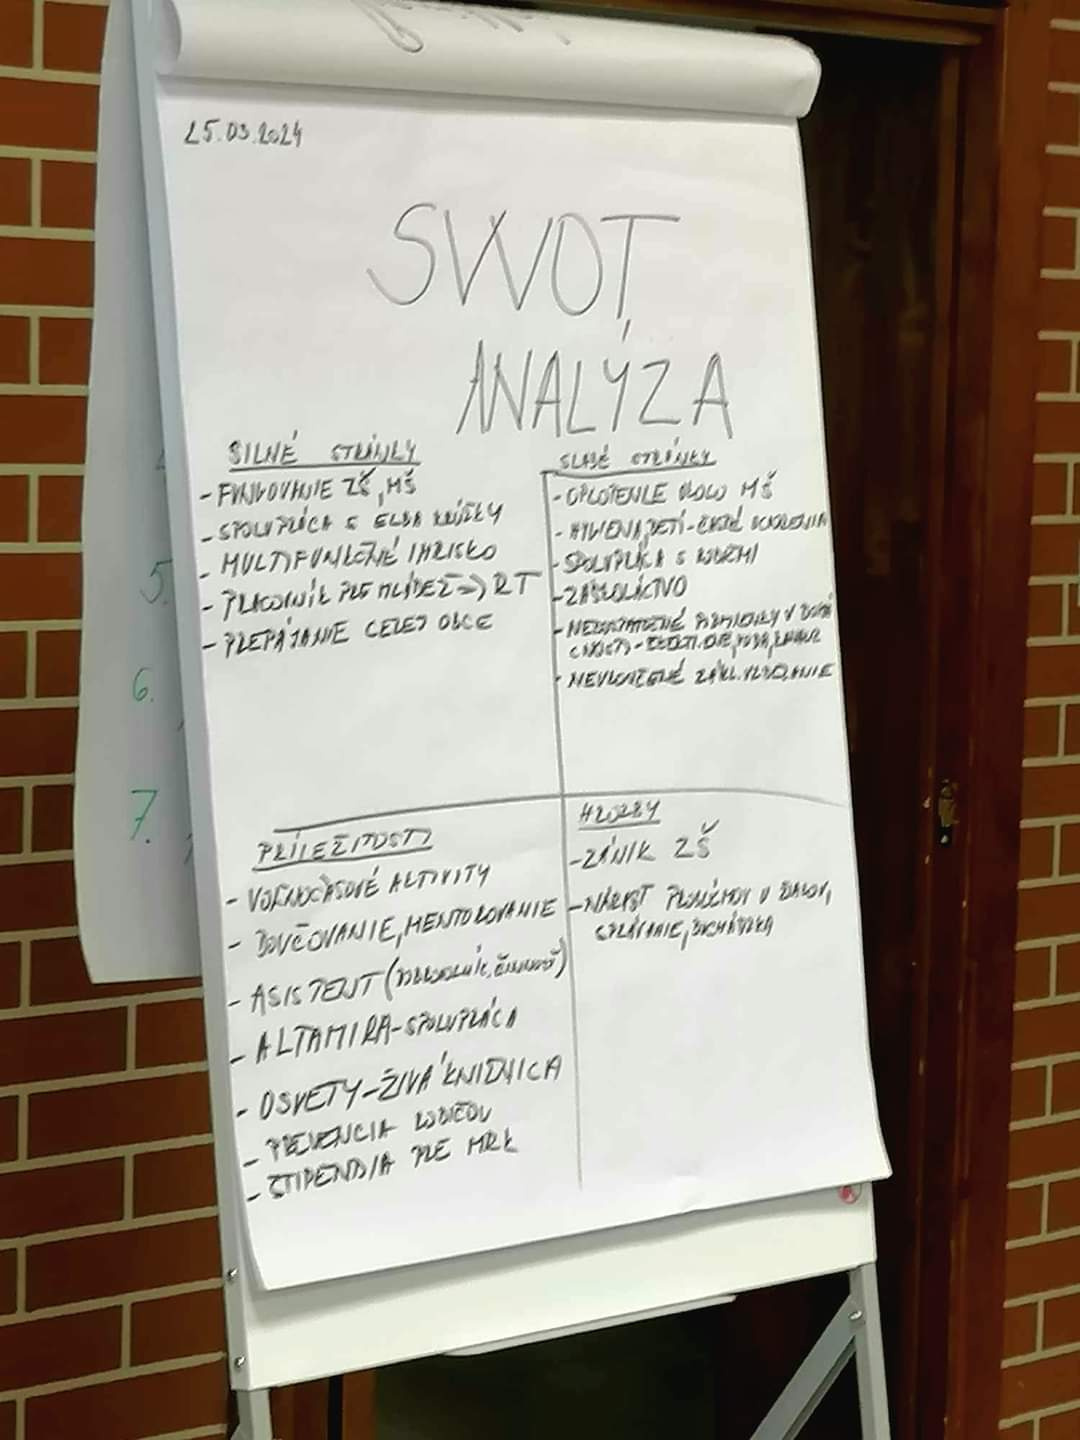 25.03.2024
SWOT
ANALÝZA
SILNÉ STRÁNKY
- FUNGOVANIE ZŠ, MŠ
- SPOLUPRÁCA S
- MULTIFUNKČNÉ IHRISKO
- PRACOVNÍK PRE MLÁDEŽ => RT
- PREPÁJANIE CELEJ OBCE
SLABÉ STRÁNKY
- OPLOTENIE OKOLO MŠ
- HYGIENA DETÍ - ČASTÉ OCHORENIA
- SPOLUPRÁCA S RODIČMI
- ZÁŠKOLÁCTVO
- NEDOSTATOČNÉ PODMIENKY V DOMÁ
CNOSTI -
- NEUKONČENÉ ZÁKL. VZDELANIE
PRÍLEŽITOSTI
- VOĽNOČASOVÉ AKTIVITY
- DOUČOVANIE, MENTOROVANIE
- ASISTENT (
- ALTAMIRA - SPOLUPRÁCA
- OSVETY - ŽIVÁ KNIŽNICA
- PREVENCIA RODIČOV
- ŠTIPENDIA PRE MRK
HROZBY
- ZÁNIK ZŠ
- NÁRAST PROBLÉMOV U ŽIAKOV,
SPRÁVANIE, DOCHÁDZKA
5.
6.
7.